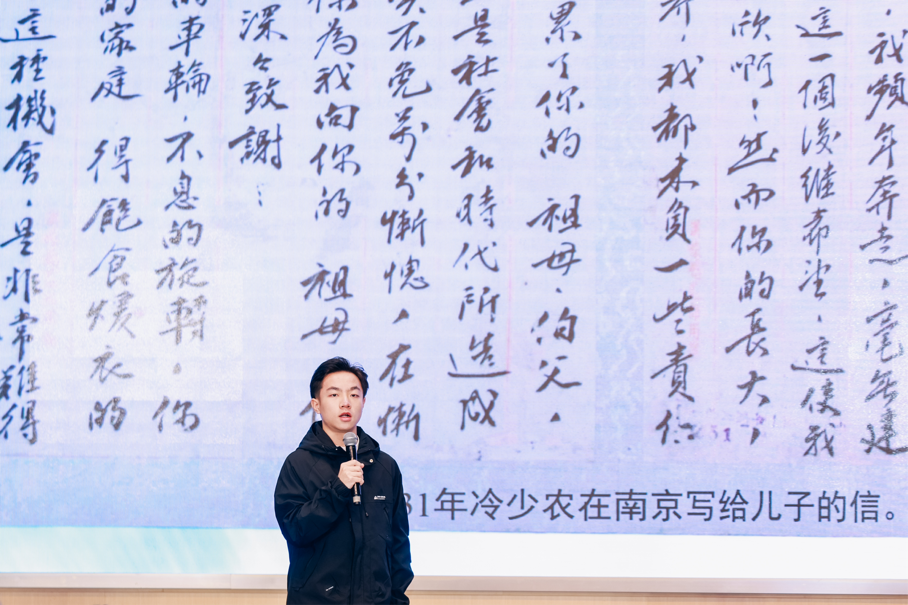 我頻年奔走，毫無建
這一個後继希望，這使我
欣啊：然而你的長大，
年，我都未負一些責任
累了你的祖母、伯父，
是社會和時代所造成
不免萬分慚愧，在慚
你為我向你的祖母
深々致謝……
的車輪，不息的旋轉，你
的家庭 得飽食煖衣的
這種機會，是非常難得
31年冷少农在南京写给儿子的信。